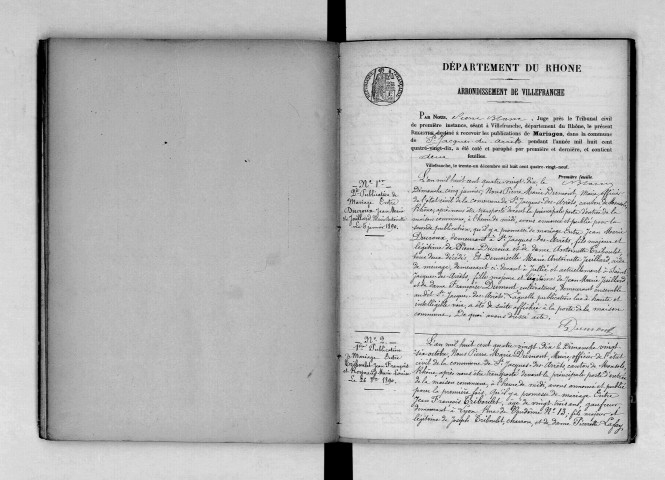 DÉPARTEMENT DU RHONE
ARRONDISSEMENT DE VILLEFRANCHE
PAR NOUS, Juge près le Tribunal civil
de première instance, séant à Villefranche, département du Rhône, le présent
Registre destiné à recevoir les publications de Mariages, dans la commune
de St Jacques des Arrêts pendant l'année mil huit cent
quatre-vingt-dix, a été coté et paraphé par première et dernière, et contient
deux feuilles.
Villefranche, le trente-un décembre mil huit cent quatre-vingt-neuf.
Première feuille.
N° 1er
2e Publication de
Mariage Entre
Ducroux Jean Marie
et Juillard Marie Antoinette
Le 5 janvier 1890.
L'an mil huit cent quatre vingt dix le
Dimanche cinq janvier, Nous Pierre Marie Dumont, Maire, officier
de l'état civil de la commune de St Jacques-des-Arrêts, canton de Monsols,
Rhône, après nous être transporté devant la principale porte d'entrée de la
maison commune, à l'heure de midi, avons annoncé et publié pour la
seconde publication, qu'il y a promesse de mariage entre Jean Marie
Ducroux, demeurant à St Jacques-des-Arrêts, fils majeur et
légitime de Pierre Ducroux et de dame Antoinette
tous deux décédés. Et Demoiselle Marie Antoinette Juillard,
de ménage, demeurant ci devant à Jullié et actuellement à Saint
Jacques des Arrêts, fille majeure et légitime de Jean Marie Juillard
et de dame Françoise Dumont cultivateurs, demeurant ensemble
audit St Jacques-des-Arrêts. Laquelle publication lue à haute et
intelligible voix, a été de suite affichée à la porte de la maison
commune. De quoi avons dressé acte.
Dumont
N° 2
1re Publication
de Mariage Entre
Triboulet Jean François
et Marie Louise
Le 26 8bre 1890.
L'an mil huit cent quatre vingt dix le Dimanche vingt
six octobre, Nous Pierre Marie Dumont, Maire, officier de l'état
civil de la commune de St Jacques-des-Arrêts, canton de Monsols,
Rhône, après nous être transporté devant la principale porte d'entrée
de la maison commune, à l'heure de midi, avons annoncé et publié
pour la première fois, qu'il y a promesse de mariage Entre
Jean François Triboulet, âgé de vingt trois ans,
demeurant à Lyon Rue N° 13, fils mineur et
légitime de Joseph Triboulet, charron, et de dame Pierrette Lafay,